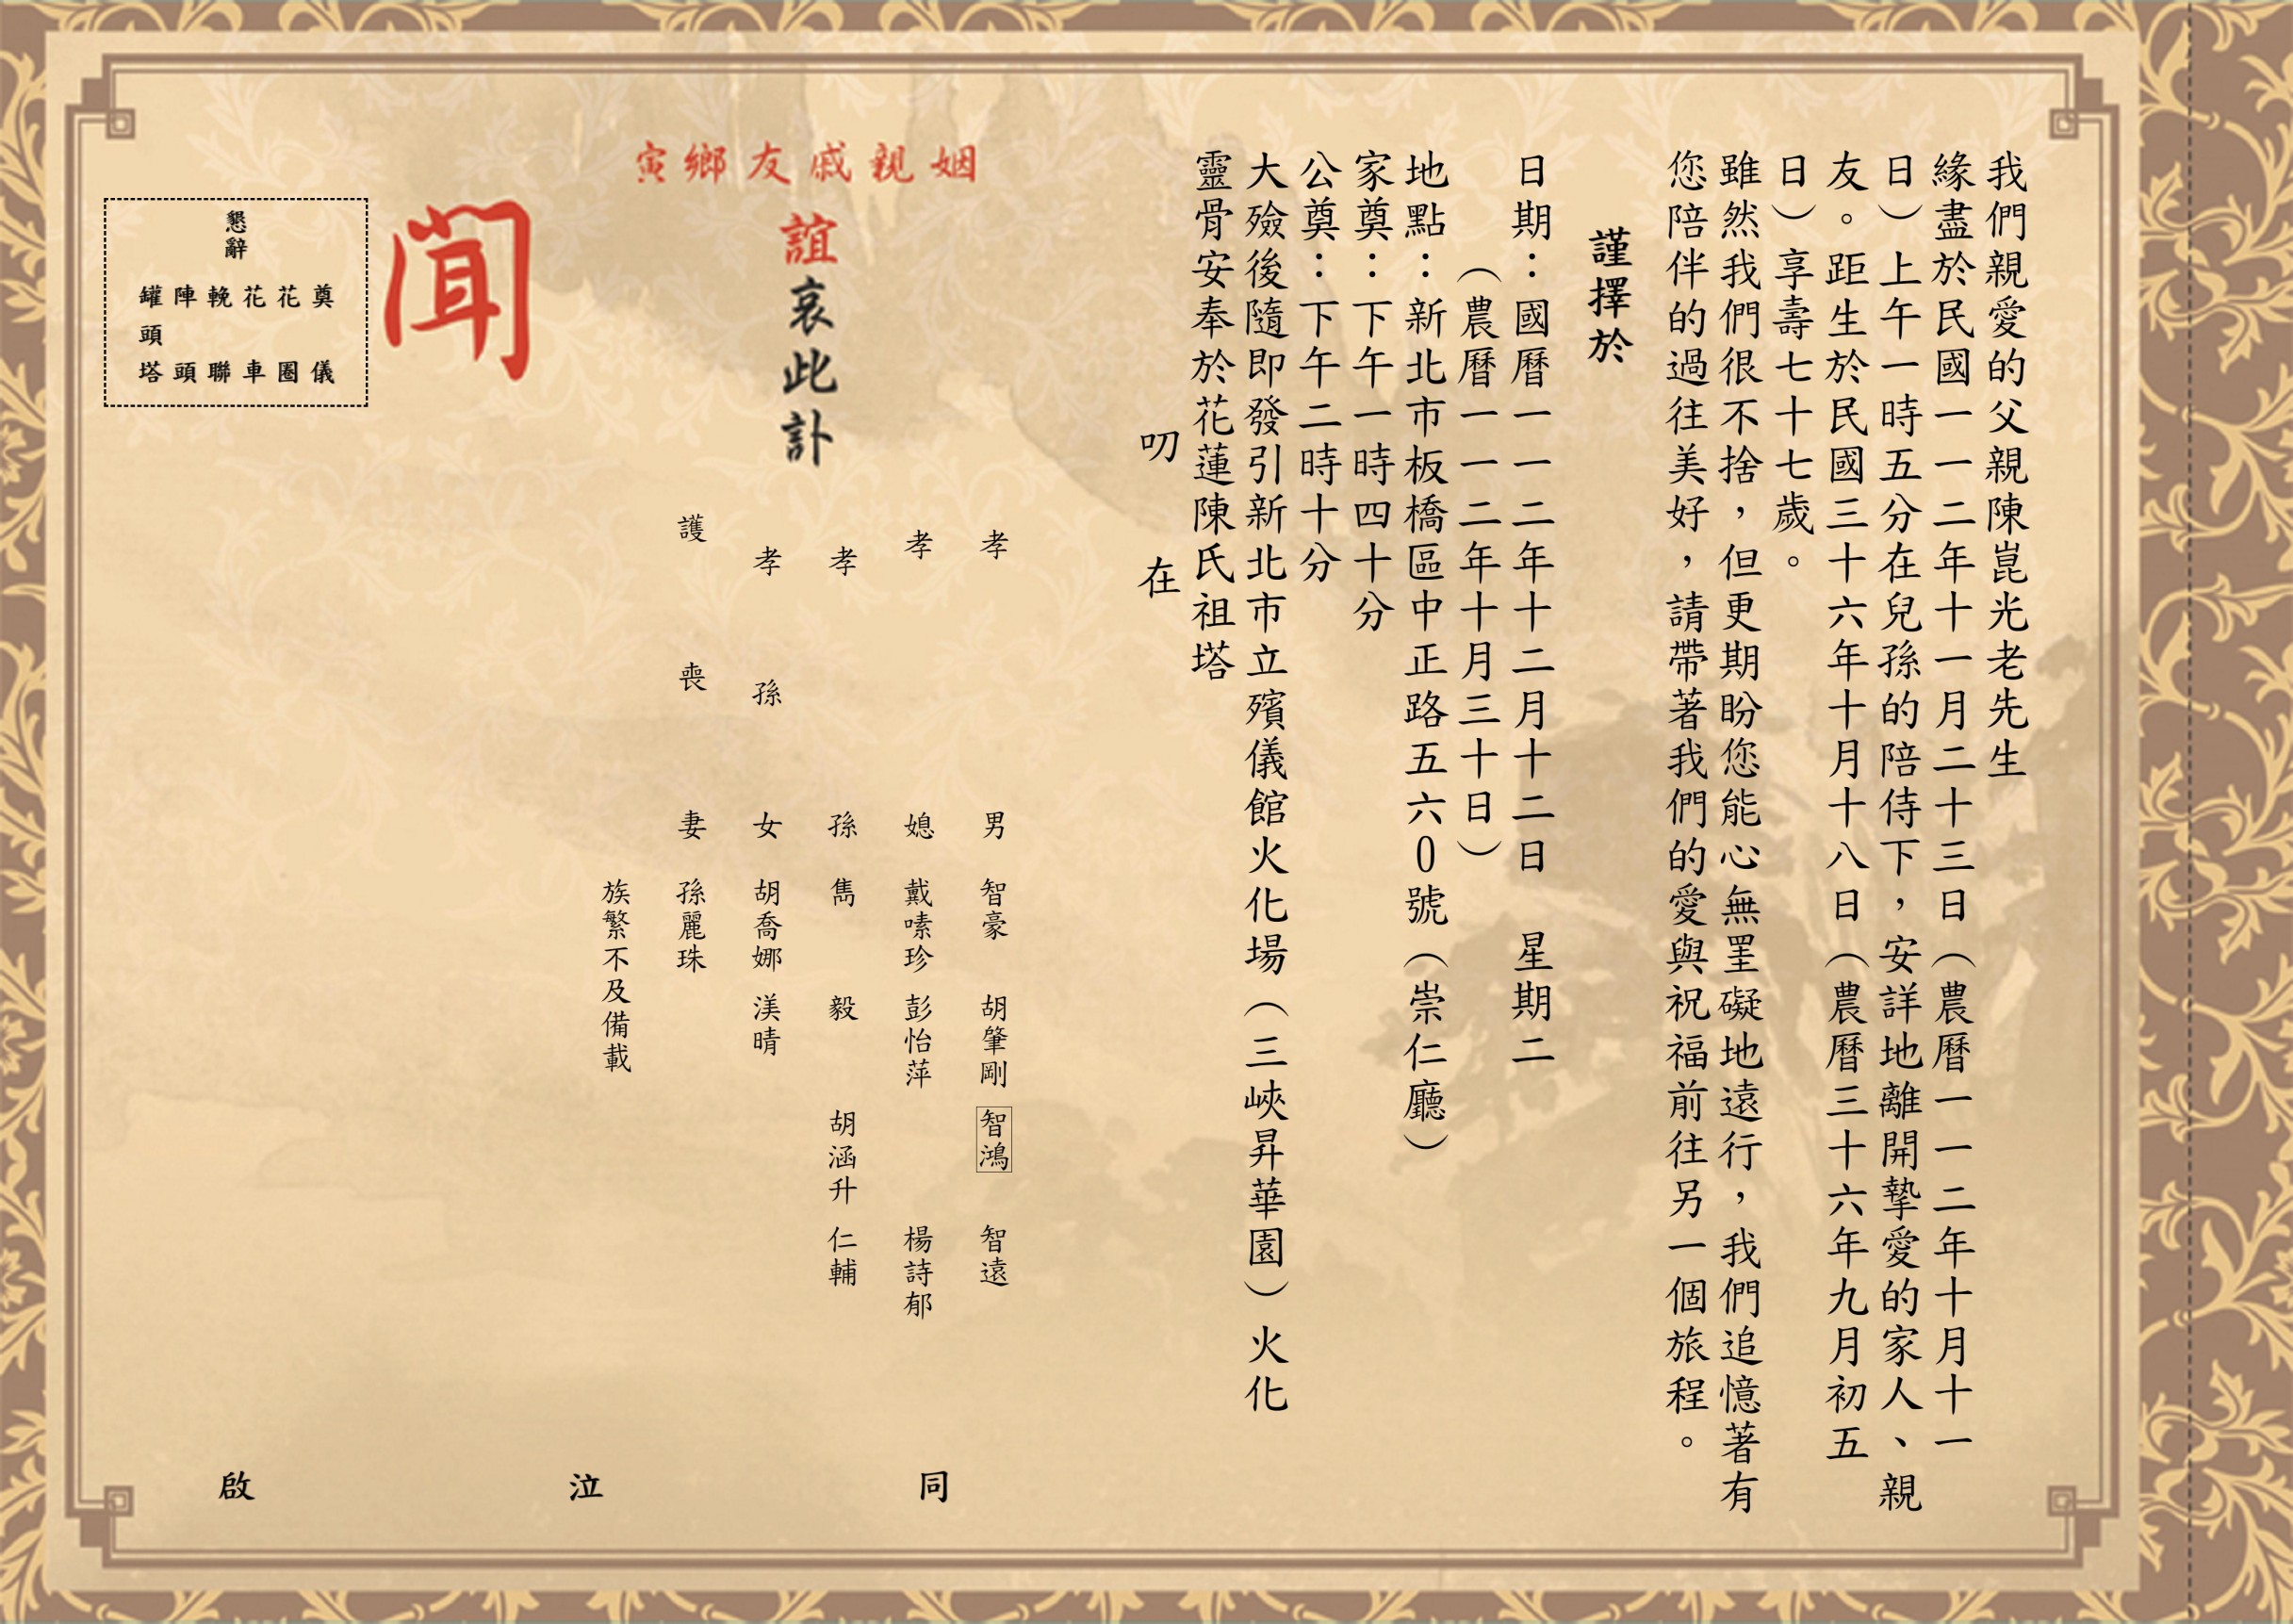 我們親愛的父親陳崑光老先生
緣盡於民國一一二年十一月二十三日（農曆一一二年十月十一
日）上午一時五分在兒孫的陪侍下，安詳地離開摯愛的家人、親
友。距生於民國三十六年十月十八日（農曆三十六年九月初五
日）享壽七十七歲。
雖然我們很不捨，但更期盼您能心無罣礙地遠行，我們追憶著有
您陪伴的過往美好，請帶著我們的愛與祝福前往另一個旅程。
謹擇於
日期：國曆一一二年十二月十二日 星期二
（農曆一一二年十月三十日）
地點：新北市板橋區中正路五六0號（崇仁廳）
家奠：下午一時四十分
公奠：下午二時十分
大殮後隨即發引新北市立殯儀館火化場（三峽昇華園）火化
靈骨安奉於花蓮陳氏祖塔
叨 在
姻親戚友鄉寅
誼哀此訃
聞
孝 男 智豪 胡肇剛 智鴻 智遠
孝 媳 戴嗉珍 彭怡萍 楊詩郁
孝 孫 雋 毅 胡涵升 仁輔
孝 孫 女 胡喬娜 渼晴
護 喪 妻 孫麗珠
族繁不及備載
同 泣 啟
懇辭
奠儀
花圈
花車
輓聯
陣頭
罐頭塔